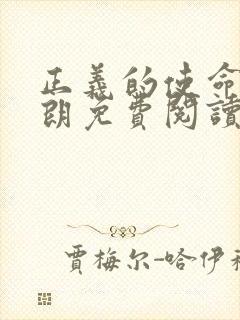 正義的使命
朗免費閱讀
賈梅尔-哈伊